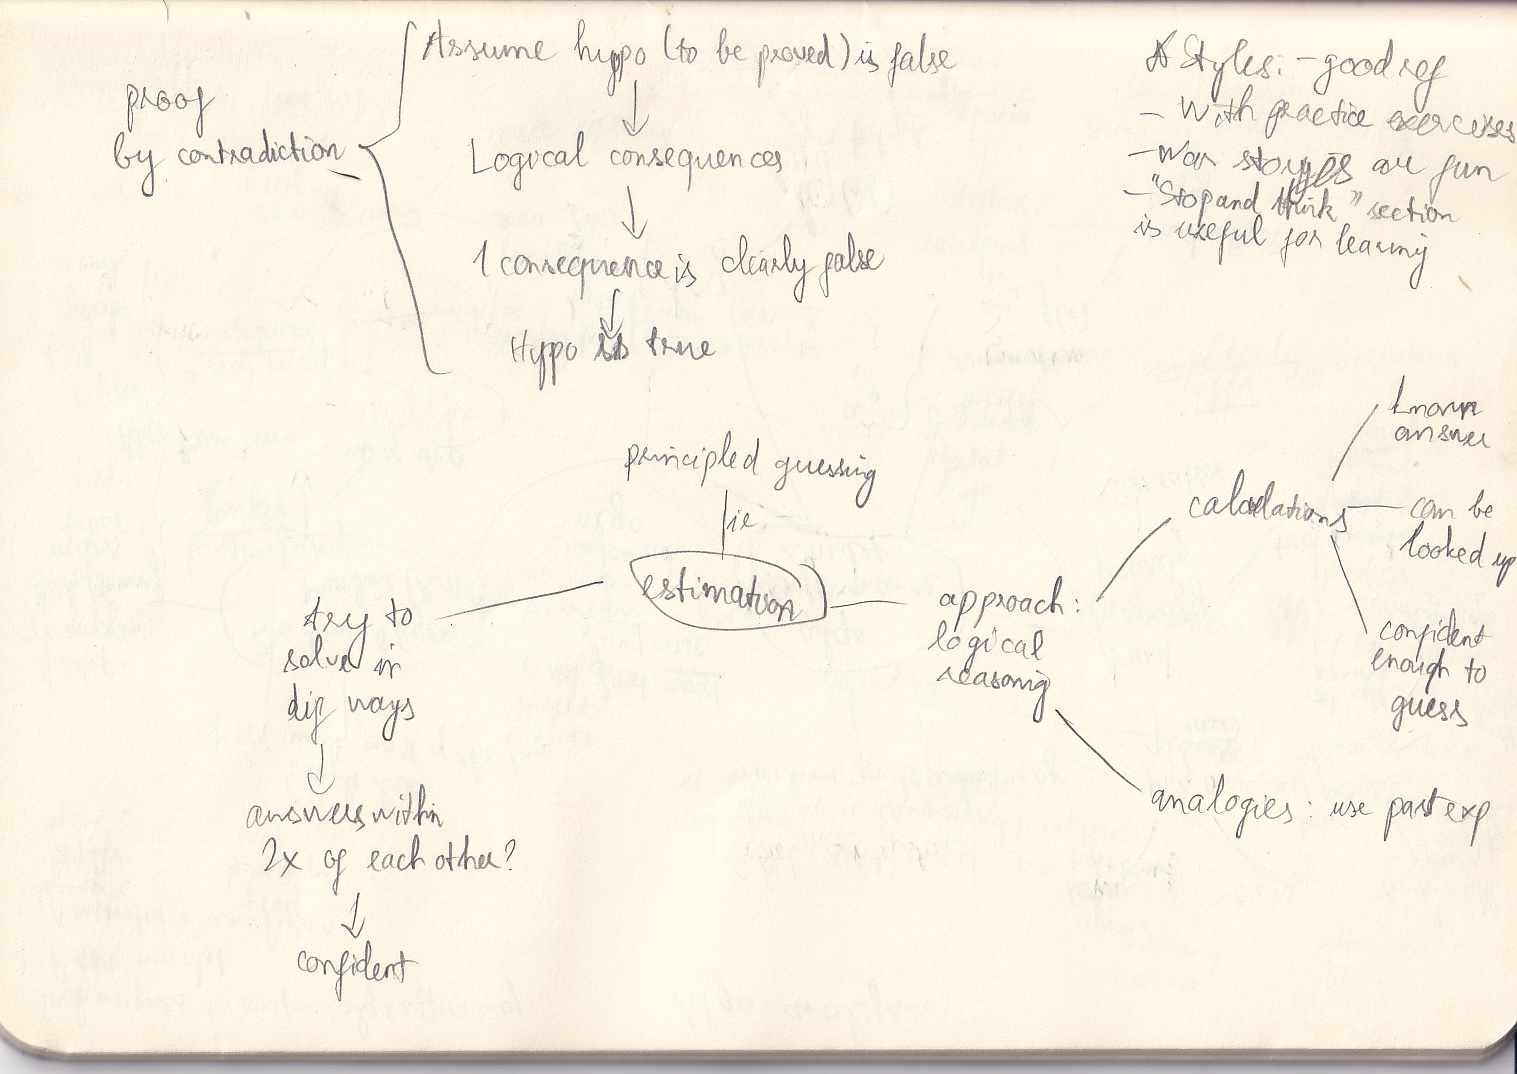 Assume hypo (to be proved) is false
proof
by contradiction
Logical consequences
1 consequence is clearly false
Hypo is true
* Styles: - good ref
- With practice exercises
- War storyes are fun
- "Stop and think" section
is useful for learning
principled guessing
ie
estimation
try to
solve in
dif ways
answers within
2x of each other?
confident
approach:
logical
reasoning
calculations
known
answer
can be
looked up
confident
enough to
guess
analogies: use past exp